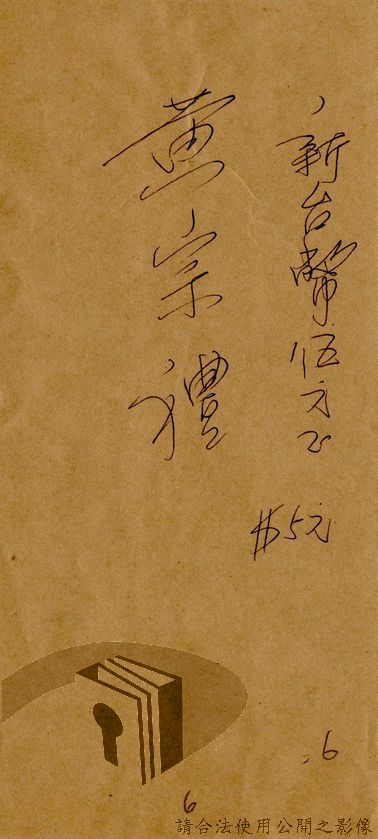 新台幣伍元正
$5元
黄宗禮
6
6
請合法使用公開之影像